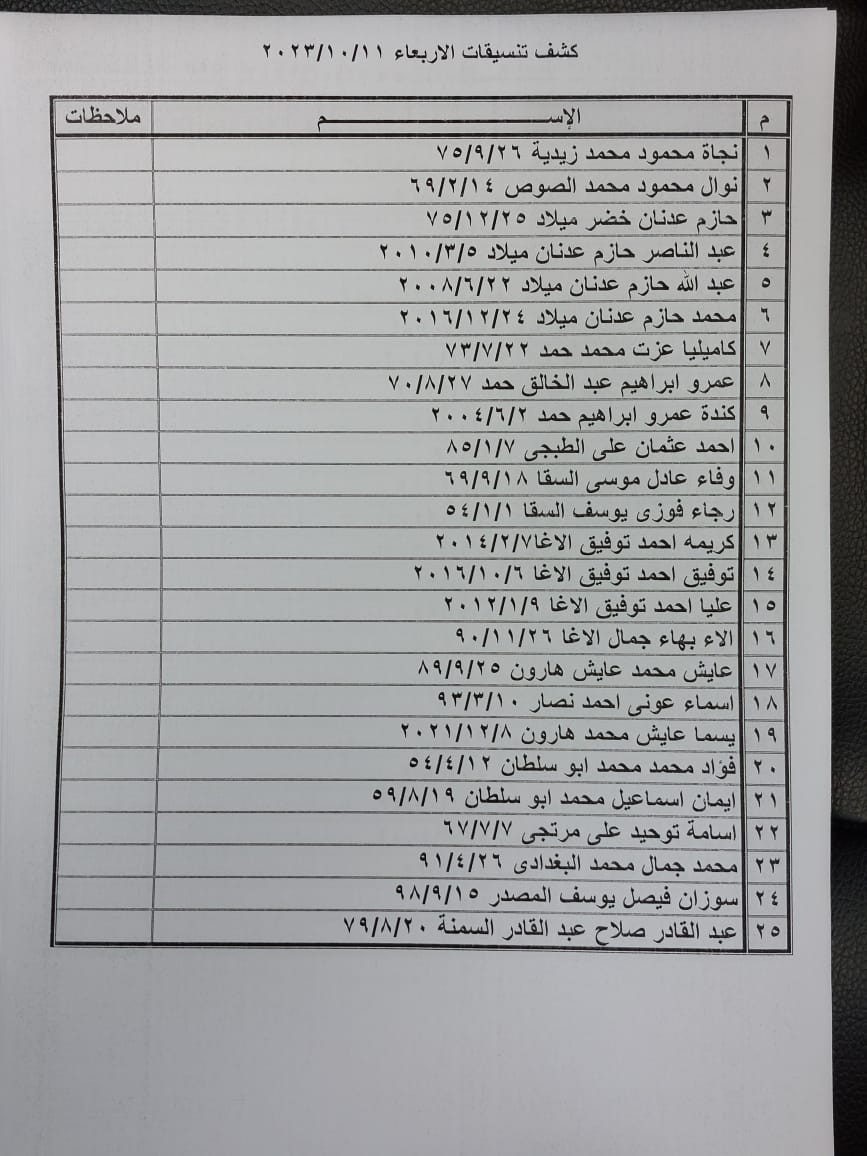 كشف تنسيقات الاربعاء ٢٠٢٣/١٠/١١
م الإســـــــــم ملاحظات
١ نجاة محمود محمد زيدية ٧٥/٩/٢٦
٢ نوال محمود محمد الصوص ٦٩/٢/١٤
٣ حازم عدنان خضر ميلاد ٧٥/١٢/٢٥
٤ عبد الناصر حازم عدنان ميلاد ٢٠١٠/٣/٥
٥ عبد الله حازم عدنان ميلاد ٢٠٠٨/٦/٢٢
٦ محمد حازم عدنان ميلاد ٢٠١٦/١٢/٢٤
٧ كاميليا عزت محمد حمد ٧٣/٧/٢٢
٨ عمرو ابراهيم عبد الخالق حمد ٧٠/٨/٢٧
٩ كندة عمرو ابراهيم حمد ٢٠٠٤/٦/٢
١٠ احمد عثمان على الطبجى ٨٥/١/٧
١١ وفاء عادل موسى السقا ٦٩/٩/١٨
١٢ رجاء فوزى يوسف السقا ٥٤/١/١
١٣ كريمه احمد توفيق الاغا٢٠١٤/٢/٧
١٤ توفيق احمد توفيق الاغا ٢٠١٦/١٠/٦
١٥ عليا احمد توفيق الاغا ٢٠١٢/١/٩
١٦ الاء بهاء جمال الاغا ٩٠/١١/٢٦
١٧ عايش محمد عايش هارون ٨٩/٩/٢٥
١٨ اسماء عونى احمد نصار ٩٣/٣/١٠
١٩ يسما عايش محمد هارون ٢٠٢١/١٢/٨
٢٠ فؤاد محمد محمد ابو سلطان ٥٤/٤/١٢
٢١ ايمان اسماعيل محمد ابو سلطان ٥٩/٨/١٩
٢٢ اسامة توحيد على مرتجى ٦٧/٧/٧
٢٣ محمد جمال محمد البغدادى ٩١/٤/٢٦
٢٤ سوزان فيصل يوسف المصدر ٩٨/٩/١٥
٢٥ عبد القادر صلاح عبد القادر السمنة ٧٩/٨/٢٠